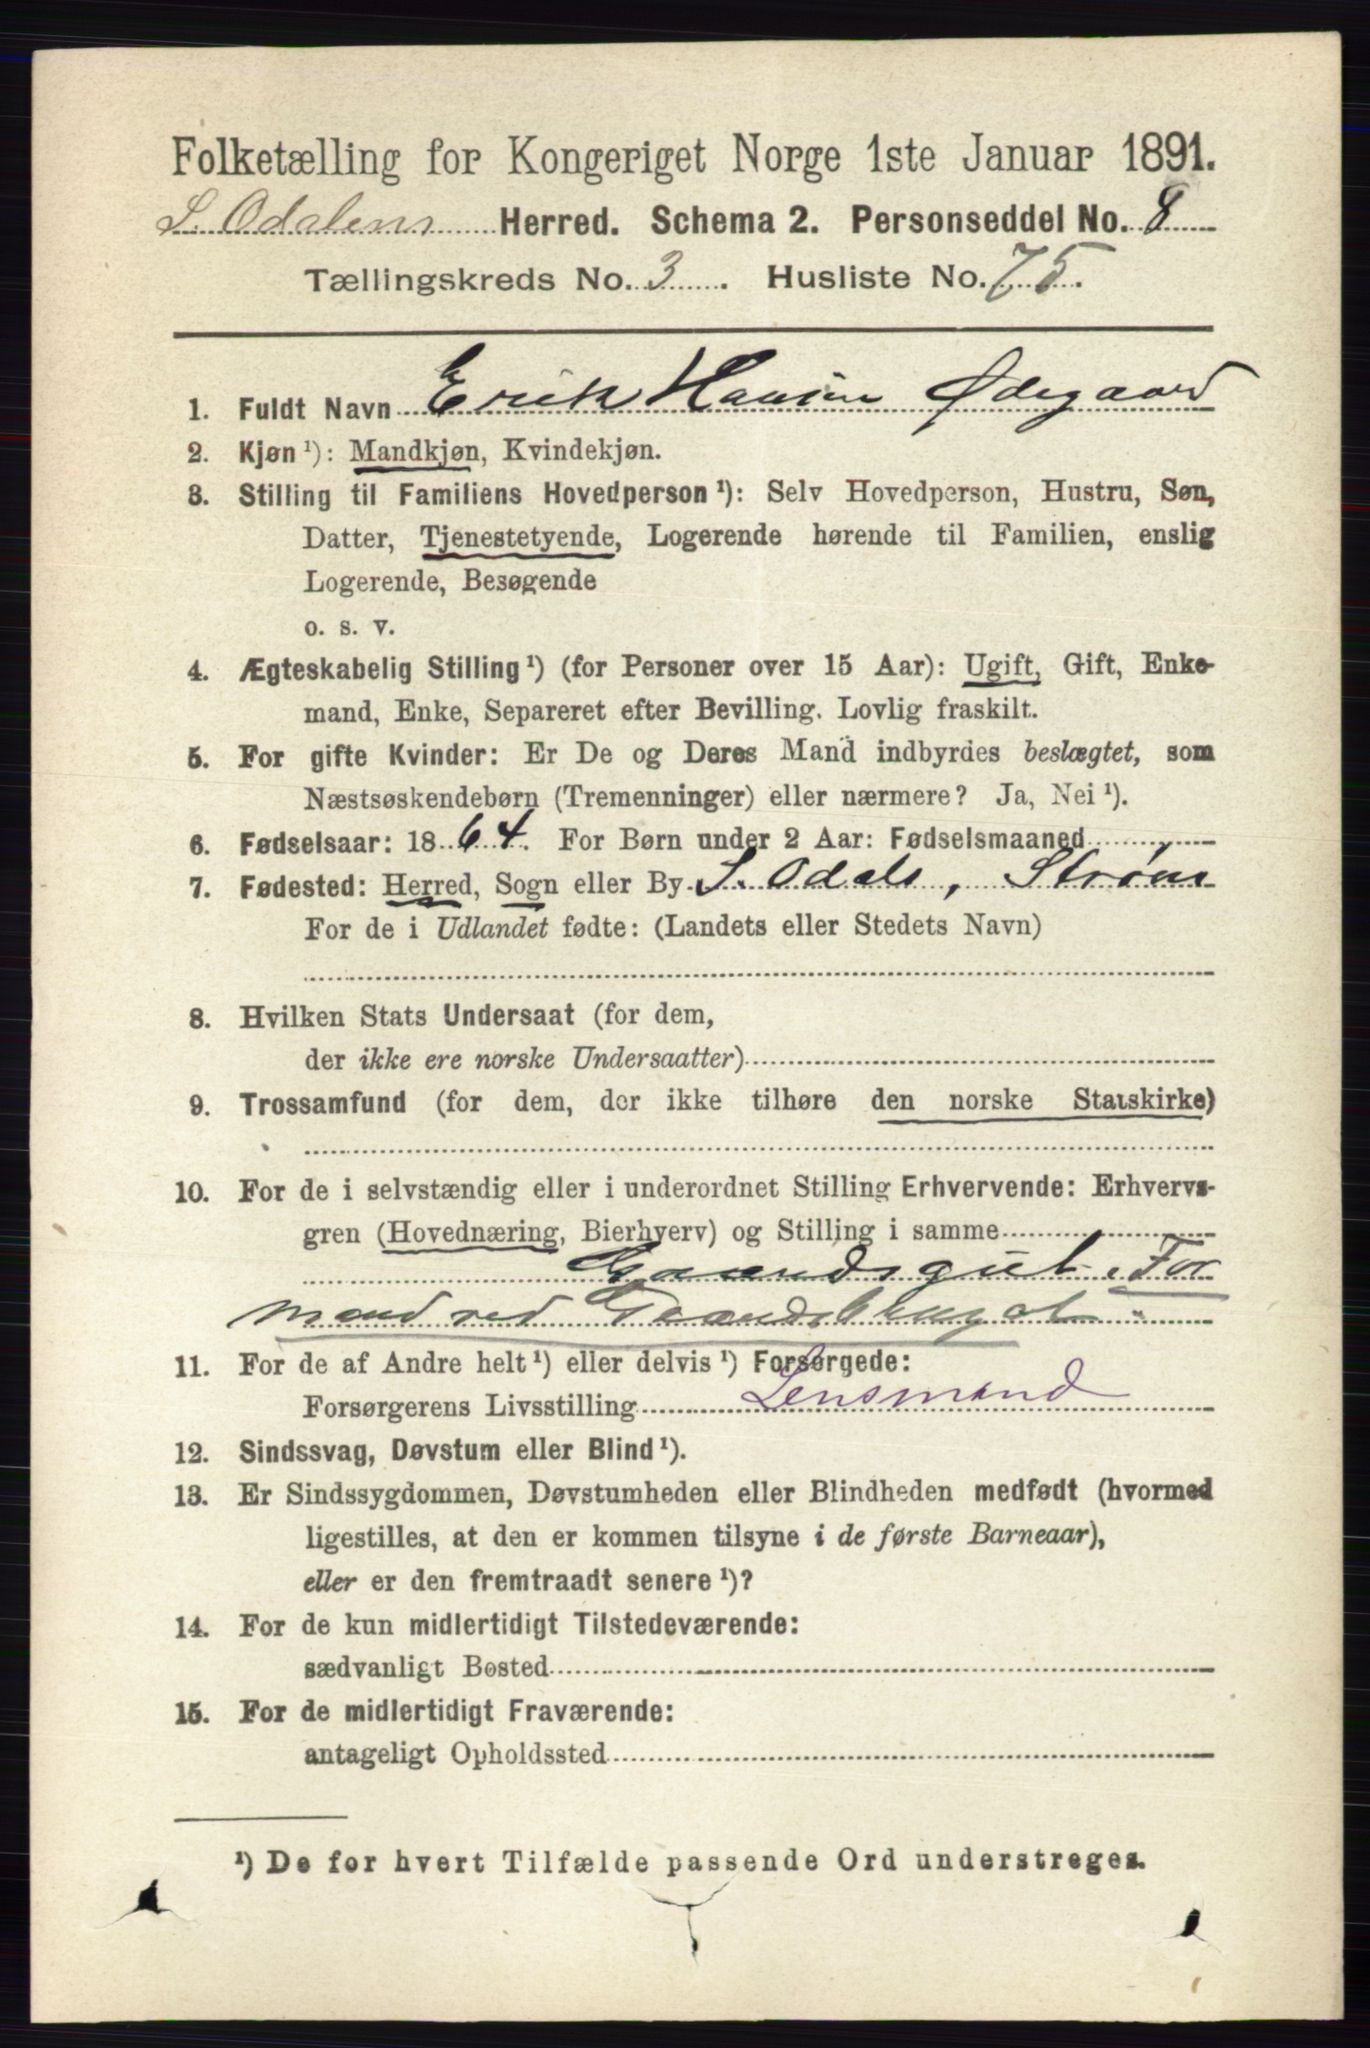 Folketælling for Kongeriget Norge 1ste Januar 1891.
S. Odalens Herred. Schema 2. Personseddel No. 8
Tællingskreds No. 3. Husliste No. 75.
1. Fuldt Navn Erik Hansen Ødegaard
2. Kjøn ¹): Mandkjøn, Kvindekjøn.
3. Stilling til Familiens Hovedperson ¹): Selv Hovedperson, Hustru, Søn,
Datter, Tjenestetyende, Logerende hørende til Familien, enslig
Logerende, Besøgende
o. s. v.
4. Ægteskabelig Stilling ¹) (for Personer over 15 Aar): Ugift, Gift, Enke-
mand, Enke, Separeret efter Bevilling. Lovlig fraskilt.
5. For gifte Kvinder: Er De og Deres Mand indbyrdes beslægtet, som
Næstsøskendebørn (Tremenninger) eller nærmere? Ja, Nei ¹).
6. Fødselsaar: 1864. For Børn under 2 Aar: Fødselsmaaned
7. Fødested: Herred, Sogn eller By S. Odals, Strøm
For de i Udlandet fødte: (Landets eller Stedets Navn)
8. Hvilken Stats Undersaat (for dem,
der ikke ere norske Undersaatter)
9. Trossamfund (for dem, der ikke tilhøre den norske Statskirke)
10. For de i selvstændig eller i underordnet Stilling Erhvervende: Erhvervs-
gren (Hovednæring, Bierhverv) og Stilling i samme
Gaardsgut. For
mand ved Gaardsbruget.
11. For de af Andre helt ¹) eller delvis ¹) Forsørgede:
Forsørgerens Livsstilling Lensmand
12. Sindssvag, Døvstum eller Blind ¹).
13. Er Sindssygdommen, Døvstumheden eller Blindheden medfødt (hvormed
ligestilles, at den er kommen tilsyne i de første Barneaar),
eller er den fremtraadt senere ¹)?
14. For de kun midlertidigt Tilstedeværende:
sædvanligt Bosted
15. For de midlertidigt Fraværende:
antageligt Opholdssted
¹) De for hvert Tilfælde passende Ord understreges.